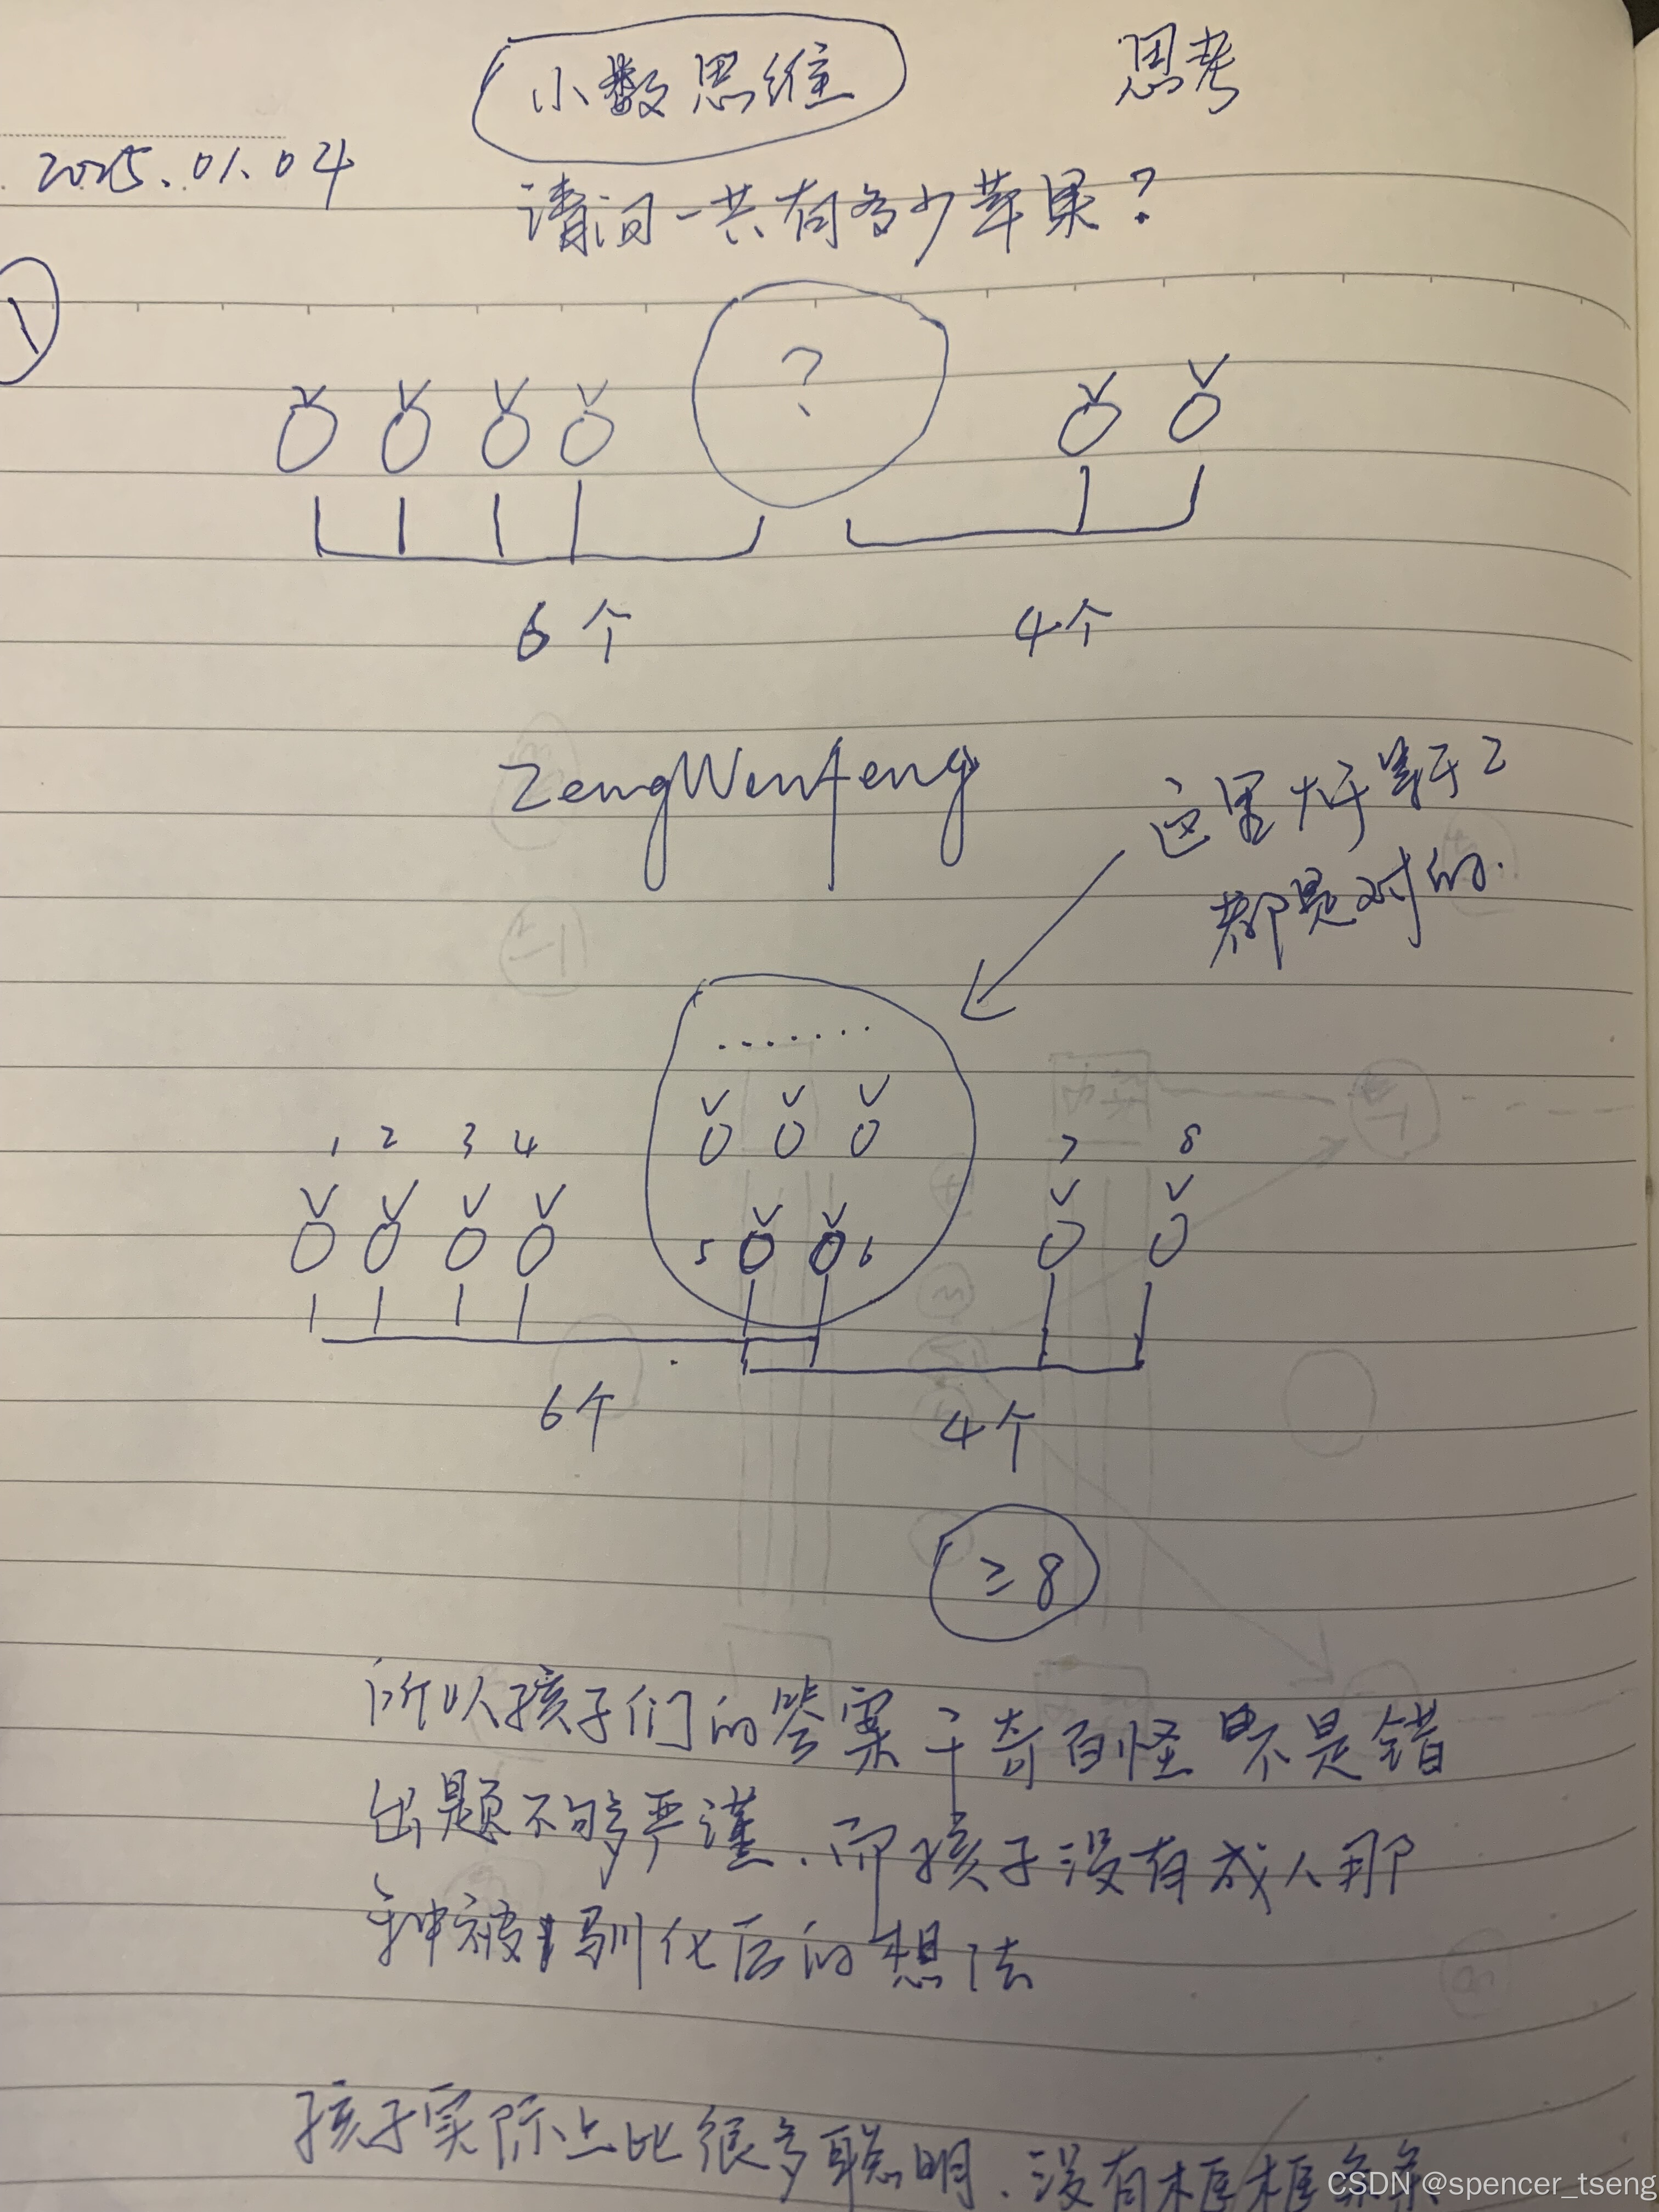 小数思维
思考
2025.01.04
请问一共有多少苹果?
1
?
6个
4个
ZengWenfeng
这里大于等于2
都是对的.
.......
1 2 3 4
7 8
5 6
6个
4个
≥8
所以孩子们的答案千奇百怪 不是错
出题不够严谨.而孩子没有成人那
种被驯化后的想法
孩子实际上比很多聪明.没有框框条条
CSDN @spencer_tseng